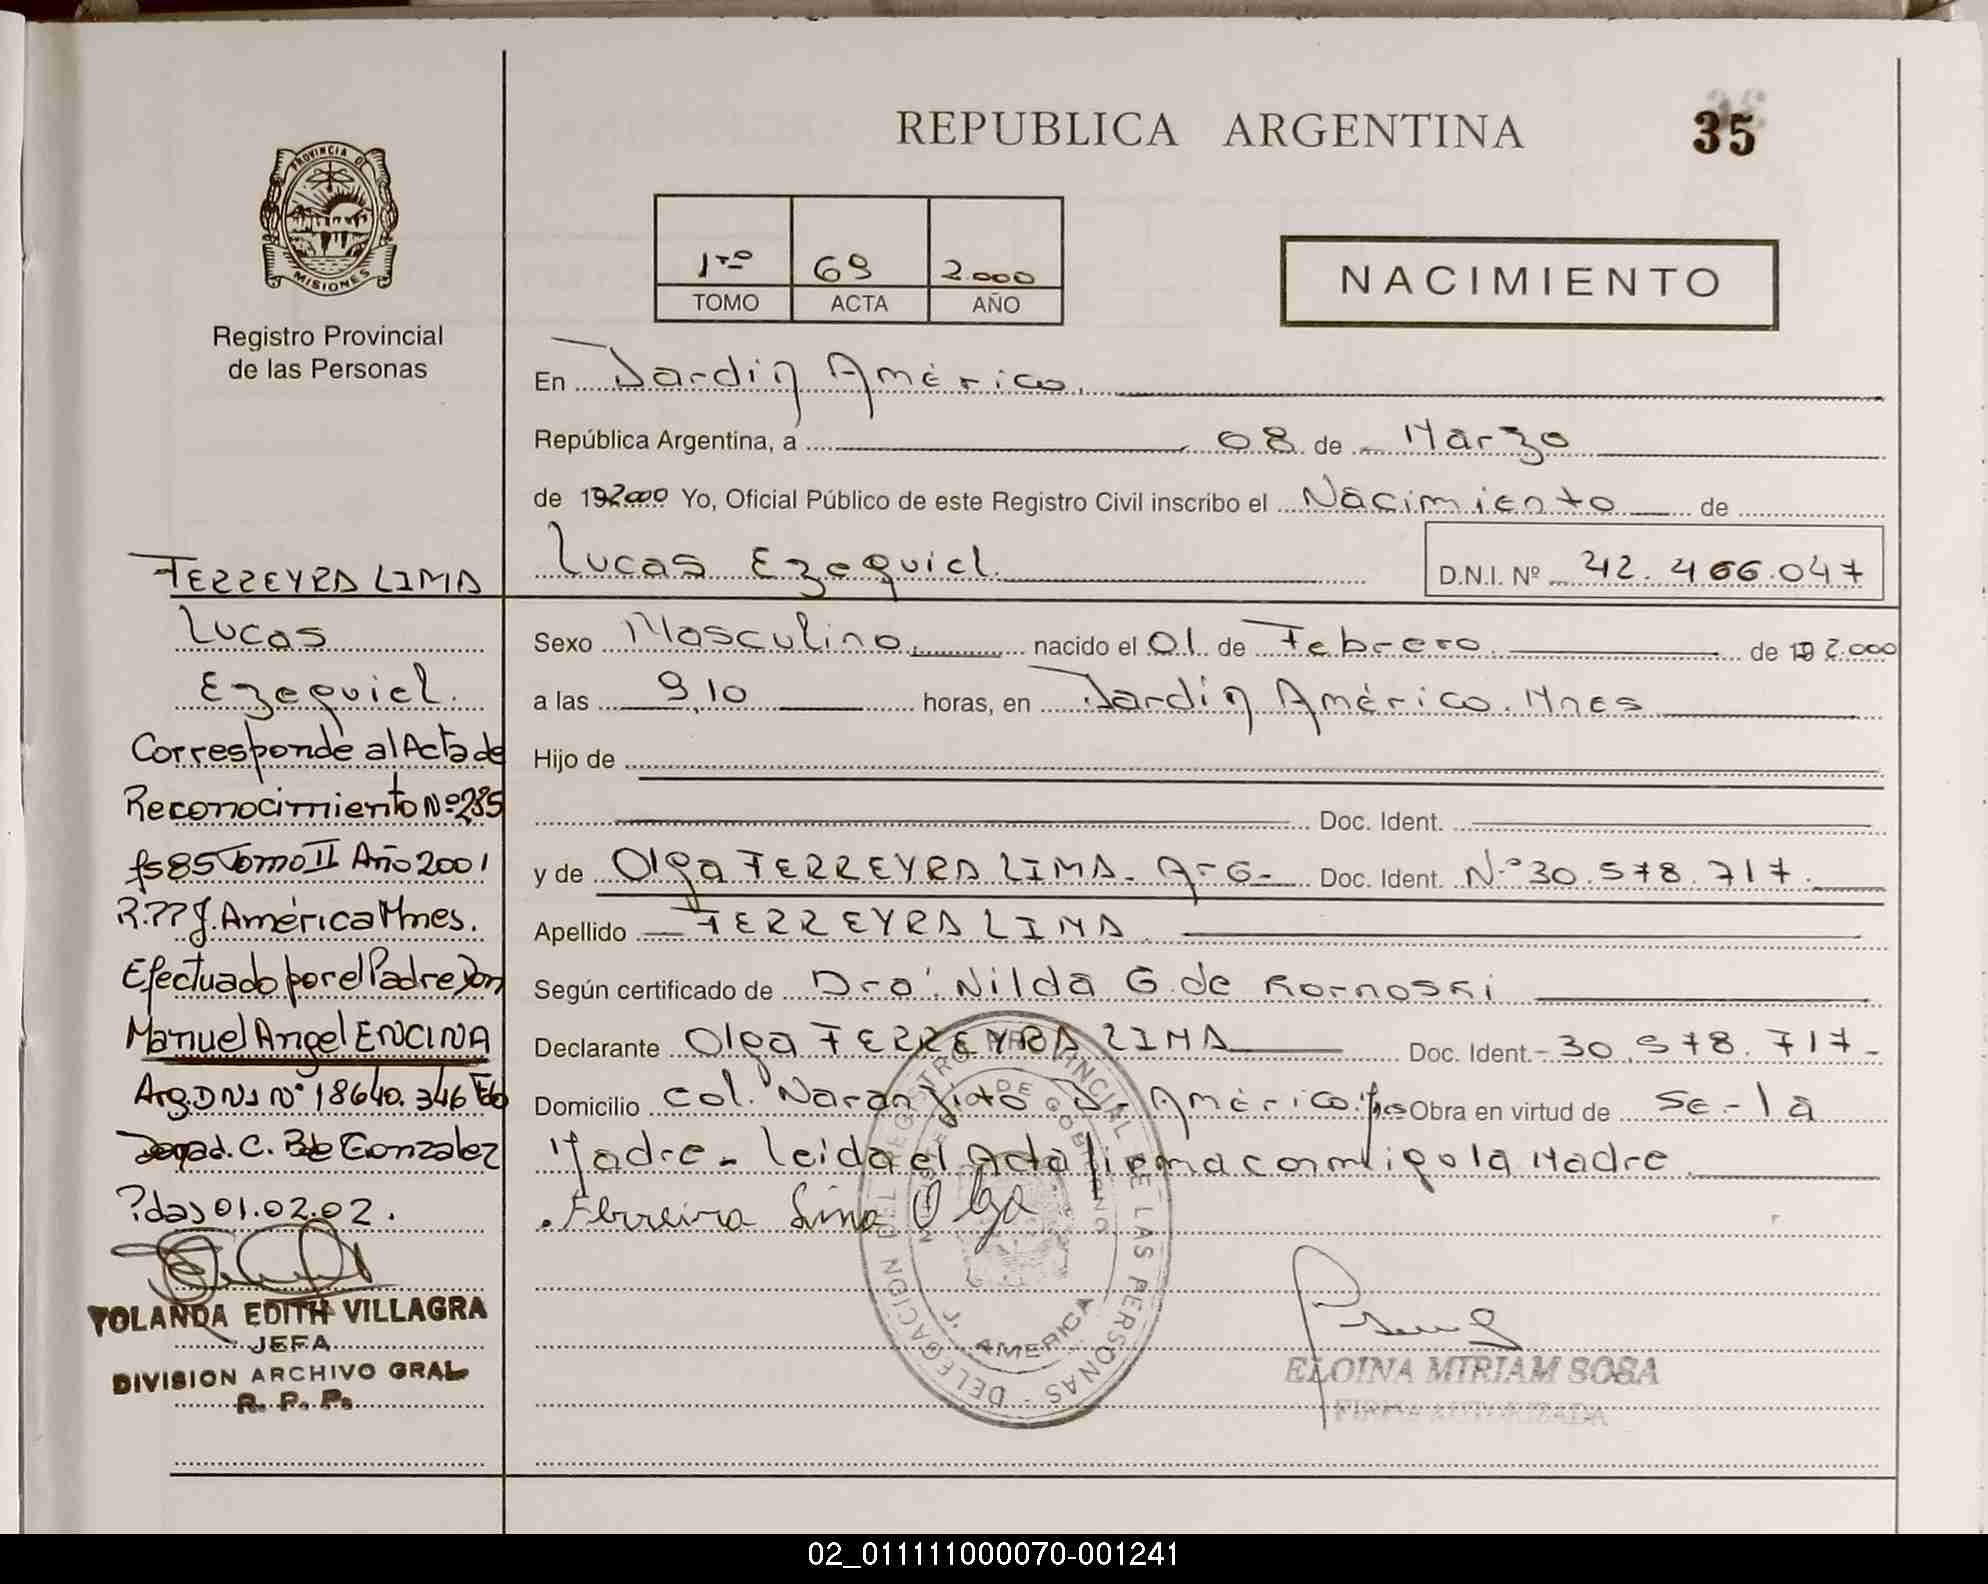 REPUBLICA ARGENTINA
35
PROVINCIA DE
MISIONES
Registro Provincial
de las Personas
1ro 69 2.000
TOMO ACTA AÑO
NACIMIENTO
En Jardin América.
República Argentina, a 08 de Marzo
de 192000 Yo, Oficial Público de este Registro Civil inscribo el Nacimiento de
Lucas Ezequiel. D.N.I. Nº 42.466.047
Sexo Masculino. nacido el 01 de Febrero. de 19 2.000
a las 9,10 horas, en Jardin América. Mnes
Hijo de
Doc. Ident.
y de Olga FERREYRA LIMA. ARG- Doc. Ident. Nº 30.578.717.
Apellido FERREYRA LIMA
Según certificado de Dra. Nilda G. de Kornoski
Declarante Olga FERREYRA LIMA Doc. Ident. 30.578.717-
Domicilio col. Naranjito J. América. Obra en virtud de Se.- la
Madre - leida el Acta firma conmigo la Madre.
Ferreira Lima Olga
FERREYRA LIMA
Lucas
Ezequiel.
Corresponde al Acta de
Reconocimiento Nº 285
fs 85 Tomo II Año 2001
J. América Mnes.
Efectuado por el Padre Don
Manuel Angel ENCINA
Arg. DNI Nº 18640.346
C. B de Gonzalez
Pdas 01.02.02.
YOLANDA EDITH VILLAGRA
JEFA
DIVISION ARCHIVO GRAL
R. P. P.
DELEGACION DEL REGISTRO PROVINCIAL DE LAS PERSONAS
J. AMERICA
ELOINA MIRIAM SOSA
FIRMA AUTORIZADA
02_011111000070-001241